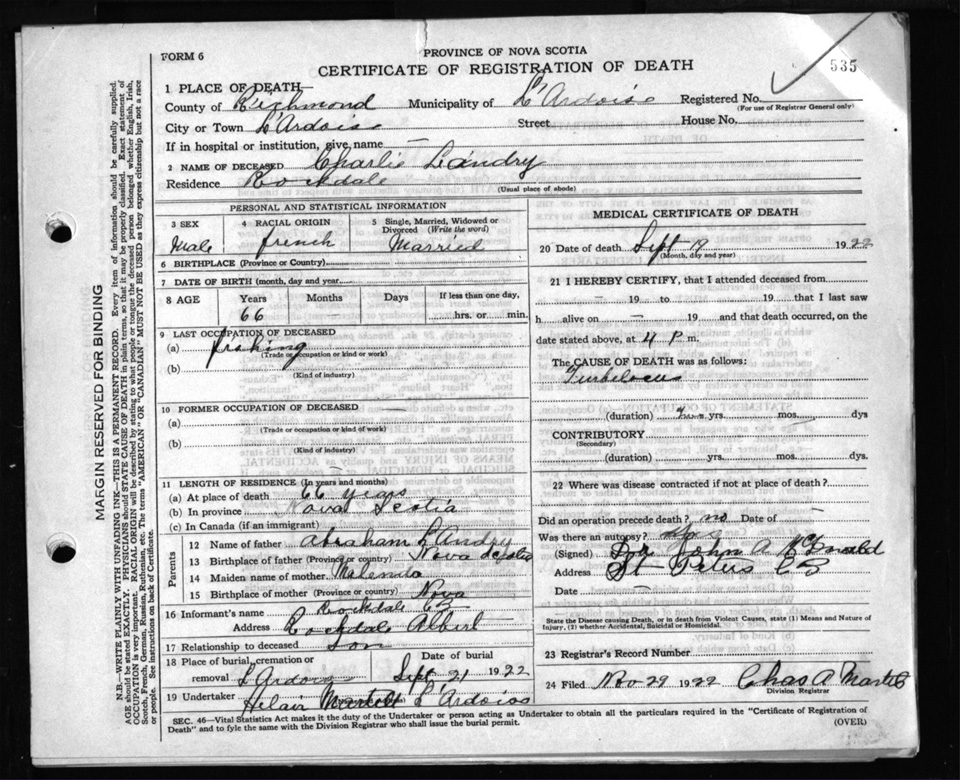 FORM 6
PROVINCE OF NOVA SCOTIA
CERTIFICATE OF REGISTRATION OF DEATH
535
1 PLACE OF DEATH—
County of Richmond Municipality of L'Ardoise Registered No.
(For use of Registrar General only)
City or Town L'Ardoise Street House No.
If in hospital or institution, give name —
2 NAME OF DECEASED Charlie Landry
Residence Rockdale
(Usual place of abode)
PERSONAL AND STATISTICAL INFORMATION
3 SEX 4 RACIAL ORIGIN 5 Single, Married, Widowed or Divorced (Write the word)
Male french Married
6 BIRTHPLACE (Province or Country)
7 DATE OF BIRTH (month, day and year)
8 AGE Years Months Days If less than one day,
66 — hrs. or min.
9 LAST OCCUPATION OF DECEASED
(a) fishing
(Trade or occupation or kind or work)
(b)
(Kind of industry)
10 FORMER OCCUPATION OF DECEASED
(a)
(Trade or occupation or kind of work)
(b)
(Kind of industry)
11 LENGTH OF RESIDENCE (In years and months)
(a) At place of death 66 years
(b) In province Nova Scotia
(c) In Canada (if an immigrant)
Parents
12 Name of father Abraham Landry
13 Birthplace of father (Province or country) Nova Scotia
14 Maiden name of mother Malenda
15 Birthplace of mother (Province or country) Nova
16 Informant's name Rockdale CB
Address Rockdale Albert
17 Relationship to deceased Son
18 Place of burial, cremation or removal L'Ardoise Date of burial Sept 21 1922
19 Undertaker Helair L'Ardoise
MEDICAL CERTIFICATE OF DEATH
20 Date of death Sept 19 1922
(Month, day and year)
21 I HEREBY CERTIFY, that I attended deceased from
— 19 to 19 that I last saw
h alive on — 19 and that death occurred, on the
date stated above, at 4 P m.
The CAUSE OF DEATH was as follows:
Turbelocus
(duration) yrs. mos. dys
CONTRIBUTORY
(Secondary)
(duration) yrs. mos. dys.
22 Where was disease contracted if not at place of death?
Did an operation precede death? no Date of —
Was there an autopsy?
(Signed) John A McDonald
Address St Peters CB
Date
State the Disease causing Death, or in death from Violent Causes, state (1) Means and Nature of
Injury, (2) whether Accidental, Suicidal or Homicidal.
23 Registrar's Record Number
24 Filed Nov 29 1922 Chas A Martell
Division Registrar
SEC. 46—Vital Statistics Act makes it the duty of the Undertaker or person acting as Undertaker to obtain all the particulars required in the "Certificate of Registration of
Death" and to fyle the same with the Division Registrar who shall issue the burial permit.
(OVER)
MARGIN RESERVED FOR BINDING
N.B.—WRITE PLAINLY WITH UNFADING INK—THIS IS A PERMANENT RECORD. Every item of information should be carefully supplied.
AGE should be stated EXACTLY. PHYSICIANS should STATE CAUSE OF DEATH in plain terms, so that it may be properly classified. Exact statement of
OCCUPATION is very important. RACIAL ORIGIN will be described by stating to what people or tongue the deceased person belonged whether English, Irish,
Scotch, French, German, Russian, Ruthenian, etc. The terms "AMERICAN" OR "CANADIAN" MUST NOT BE USED as they express citizenship but not a race
or people. See instructions on back of Certificate.